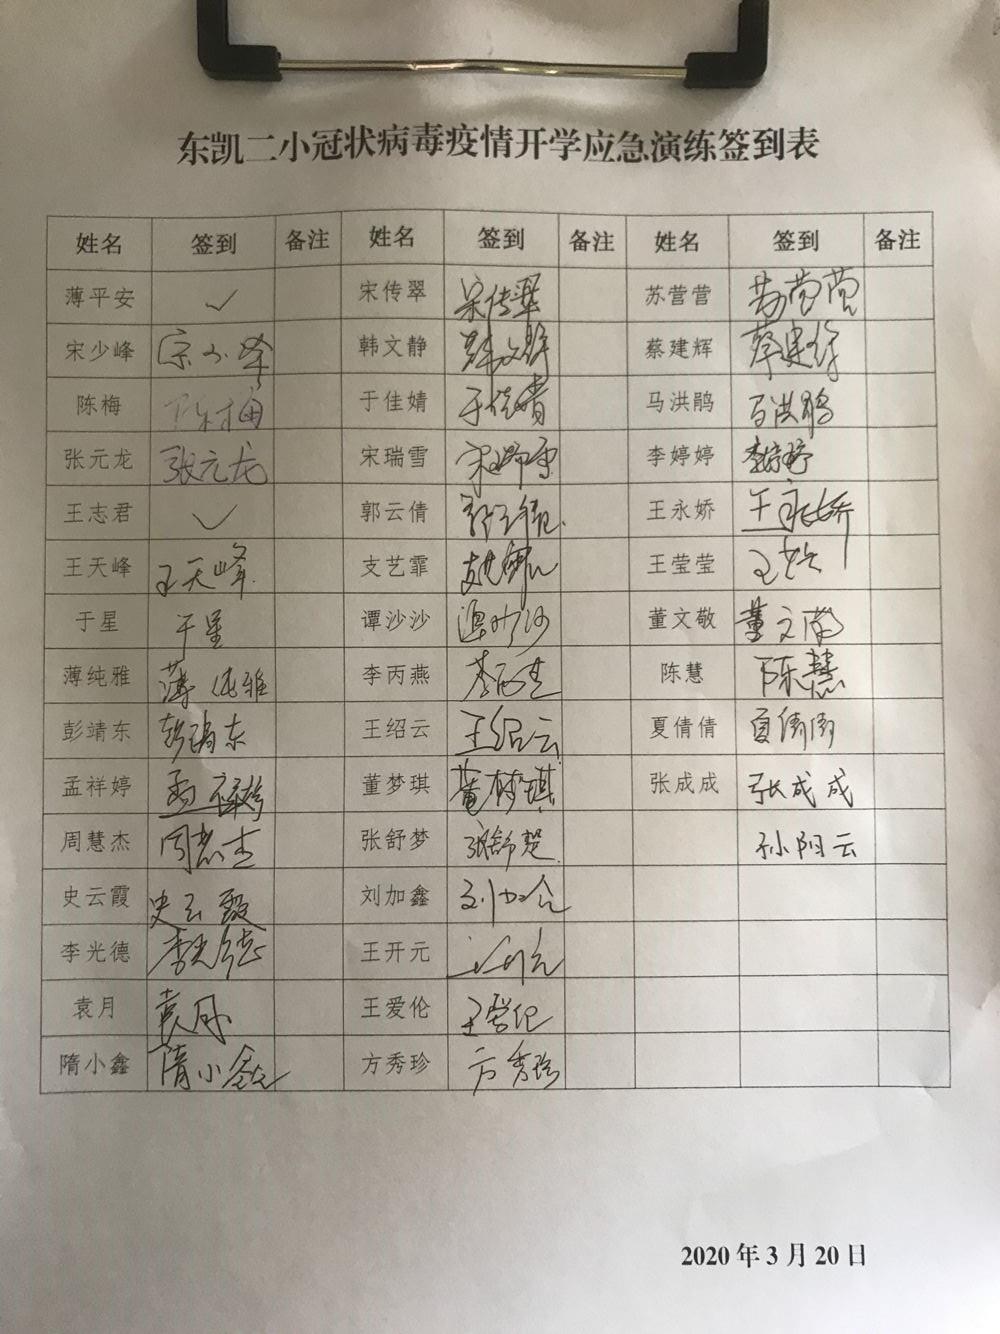 东凯二小冠状病毒疫情开学应急演练签到表
姓名 签到 备注 姓名 签到 备注 姓名 签到 备注
薄平安 ✓ 宋传翠 宋传翠 苏营营 苏营营
宋少峰 宋少峰 韩文静 韩文静 蔡建辉 蔡建辉
陈梅 陈梅 于佳婧 于佳婧 马洪鹃 马洪鹃
张元龙 张元龙 宋瑞雪 宋瑞雪 李婷婷 李婷婷
王志君 ✓ 郭云倩 郭云倩 王永娇 王永娇
王天峰 王天峰 支艺霏 支艺霏 王莹莹 王莹
于星 于星 谭沙沙 谭沙沙 董文敬 董文敬
薄纯雅 薄纯雅 李丙燕 李丙燕 陈慧 陈慧
彭靖东 彭靖东 王绍云 王绍云 夏倩倩 夏倩倩
孟祥婷 孟祥婷 董梦琪 董梦琪 张成成 张成成
周慧杰 周慧杰 张舒梦 张舒梦 孙阳云
史云霞 史云霞 刘加鑫 刘加鑫
李光德 李光德 王开元 王开元
袁月 袁月 王爱伦 王爱伦
隋小鑫 隋小鑫 方秀珍 方秀珍
2020 年 3 月 20 日